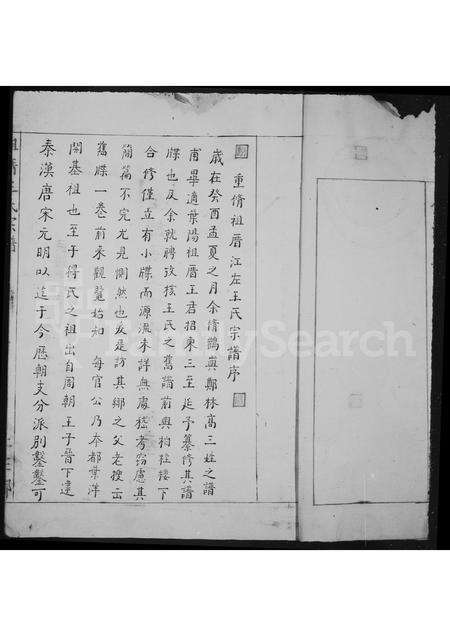 重脩祖厝江左王氏宗譜序
歲在癸酉孟夏之月余脩鶴與鄭林高三姓之譜
甫畢適葉陽祖厝王君招東三至延予纂修其譜
牒也及余就聘攷核王氏之舊譜前與柏柱樓下
合修僅立有小牒而源流未詳無處稽考窃慮其
簡篇不完尤見惻然也爰是訪其鄉之父老搜出
舊牒一卷前來觀覽始知 每官公乃奉都葉洋
開基祖也至于得氏之祖出自周朝王子晉下逮
秦漢唐宋元明以迄于今歷朝支分派別鑿鑿可
祖厝王氏宗譜
FamilySearch